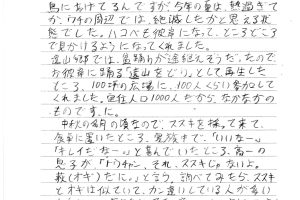 鳥にあげてるんですが、今年の夏は、熱過ぎて
か、ウチの周辺では、絶滅したかと思える状
態でした。ハコベも彼岸になって、ところどころ
で見かけるようになってくれました。
遠山郷では、盆踊りが途絶えそうだったので、
お彼岸に踊る「遠山をどり」として再生した
ところ、100坪の広場に、100人くらい参加して
くれました。定住人口1000人だから、なかなかの
ものです。
中秋の名月の頃なので、ススキを採って来て、
食卓に置いたところ、晃残さで、「いいなー」
「キレイだなー」と喜んでいたところ、高一の
息子が「トウチャン、それ、ススキじゃないよ。
荻(オギ)だに。」と言う、調べてみたら、ススキ
とオギは似ていて、カン違いしている人が多い